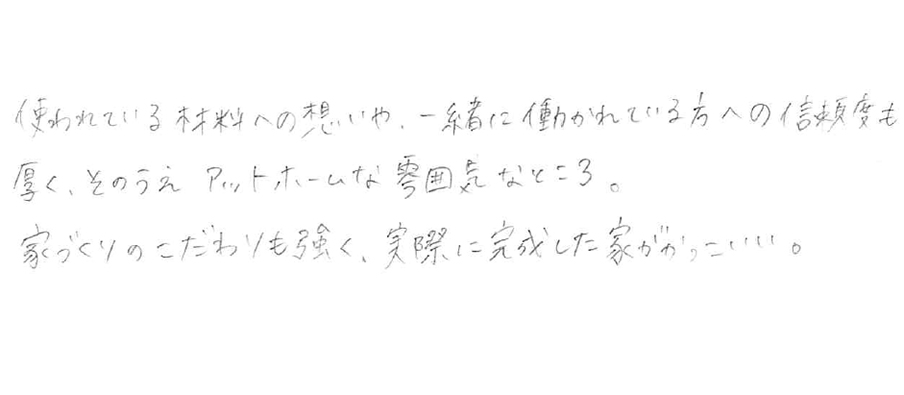 使われている材料への想いや、一緒に働かれている方への信頼度も
厚く、そのうえ アットホームな雰囲気なところ。
家づくりのこだわりも強く、実際に完成した家がかっこいい。